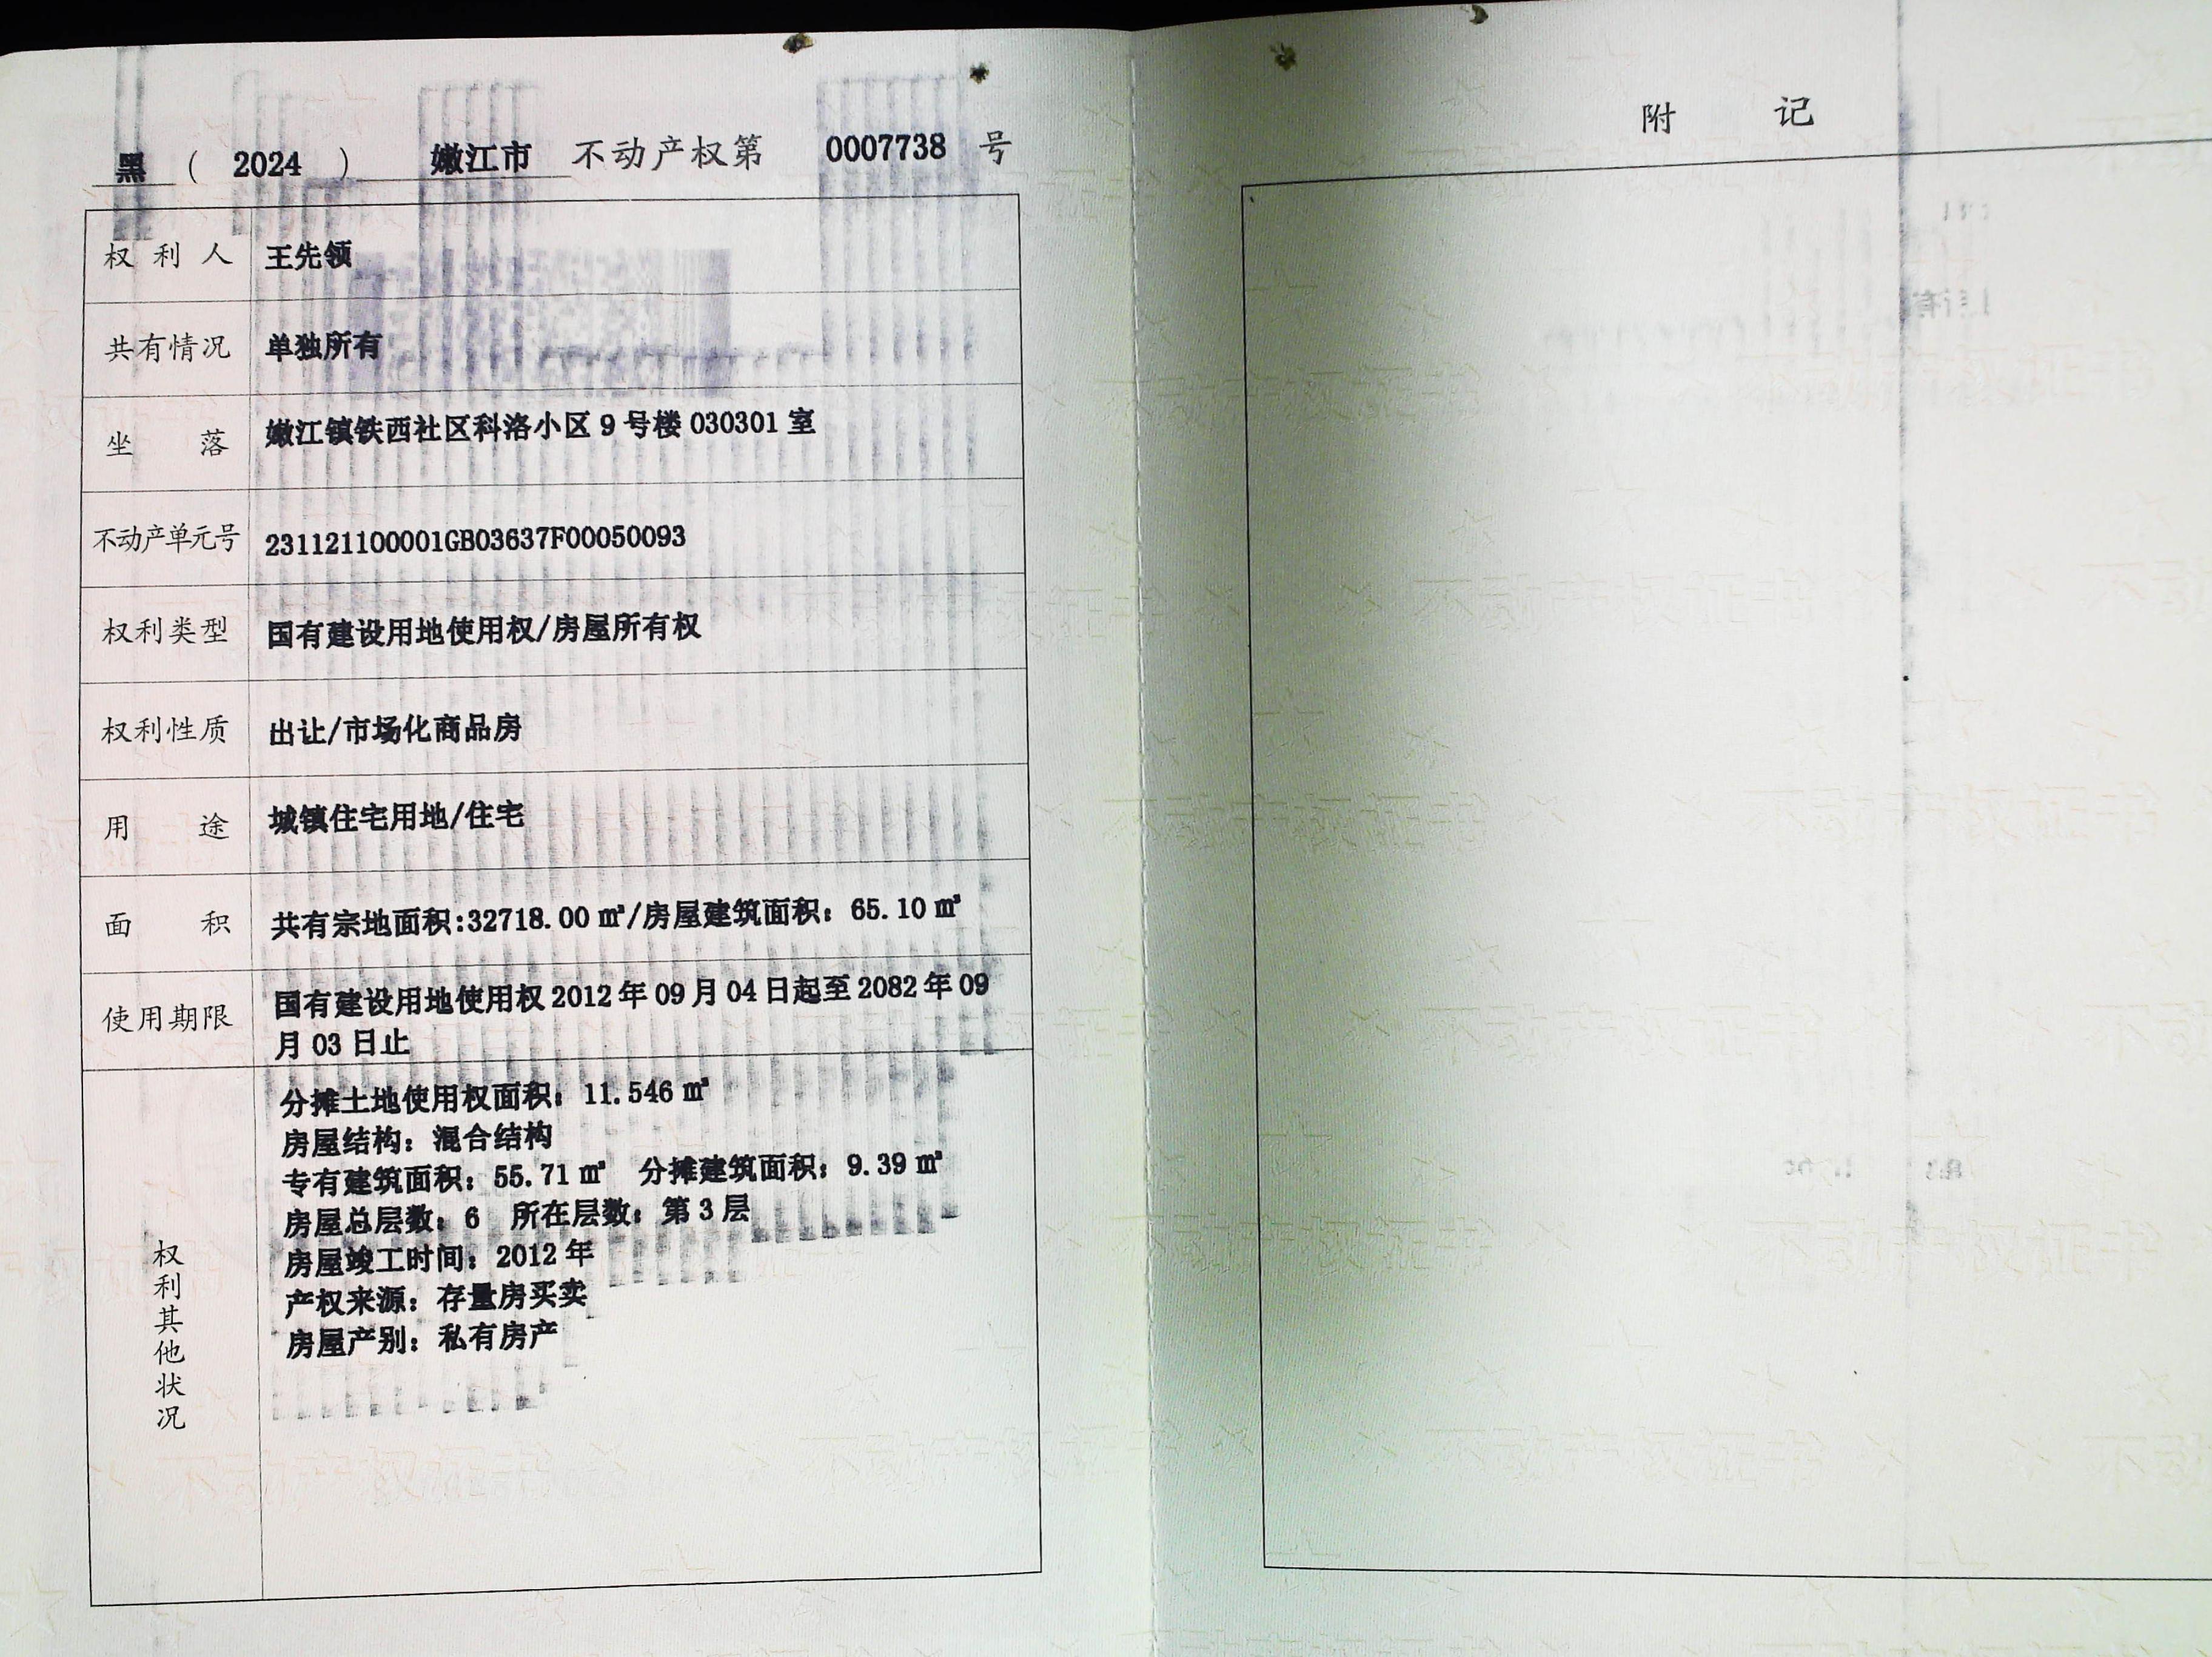 黑 ( 2024 ) 嫩江市 不动产权第 0007738 号
权利人 王先领
共有情况 单独所有
坐落 嫩江镇铁西社区科洛小区 9 号楼 030301 室
不动产单元号 231121100001GB03637F00050093
权利类型 国有建设用地使用权/房屋所有权
权利性质 出让/市场化商品房
用途 城镇住宅用地/住宅
面积 共有宗地面积:32718.00 ㎡/房屋建筑面积：65.10 ㎡
使用期限 国有建设用地使用权 2012 年 09 月 04 日起至 2082 年 09
月 03 日止
权利其他状况
分摊土地使用权面积：11.546 ㎡
房屋结构：混合结构
专有建筑面积：55.71 ㎡ 分摊建筑面积：9.39 ㎡
房屋总层数：6 所在层数：第 3 层
房屋竣工时间：2012 年
产权来源：存量房买卖
房屋产别：私有房产
附 记